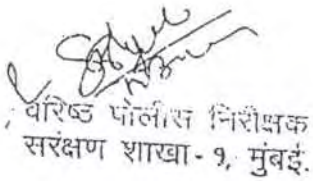 वरिष्ठ पोलीस निरीक्षक
सरंक्षण शाखा - १, मुंबई.